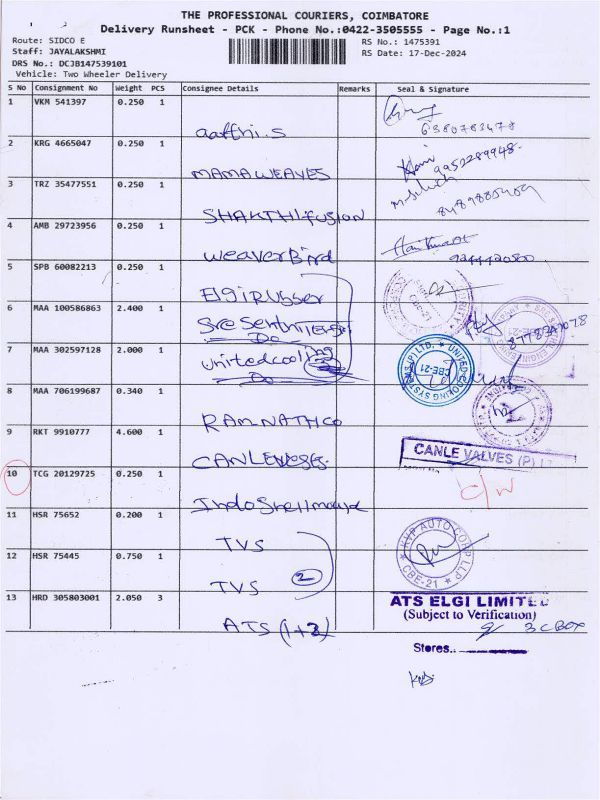 THE PROFESSIONAL COURIERS, COIMBATORE
Delivery Runsheet - PCK - Phone No.:0422-3505555 - Page No.:1
Route: SIDCO E
RS No.: 1475391
Staff: JAYALAKSHMI
RS Date: 17-Dec-2024
DRS No.: DCJB147539101
Vehicle: Two Wheeler Delivery
S No Consignment No Weight PCS Consignee Details Remarks Seal & Signature
1 VKM 541397 0.250 1
2 KRG 4665047 0.250 1
MAMA WEAVES
3 TRZ 35477551 0.250 1
SHAKTHI fusion
4 AMB 29723956 0.250 1
weaver Bird
5 SPB 60082213 0.250 1
Elgi Rubber
6 MAA 100586863 2.400 1
Do
7 MAA 302597128 2.000 1
united cooling
Do
UNITED COOLING SYSTEMS (P) LTD. CBE-21
8 MAA 706199687 0.340 1
RAMNATH CO
9 RKT 9910777 4.600 1
CANLE VALVES (P)
10 TCG 20129725 0.250 1
C/N
11 HSR 75652 0.200 1
TVS
KVP AUTO CORP LLP CBE-21
12 HSR 75445 0.750 1
TVS
2
13 HRD 305803001 2.050 3
ATS
ATS ELGI LIMITED
(Subject to Verification)
3 C BOX
Stores.